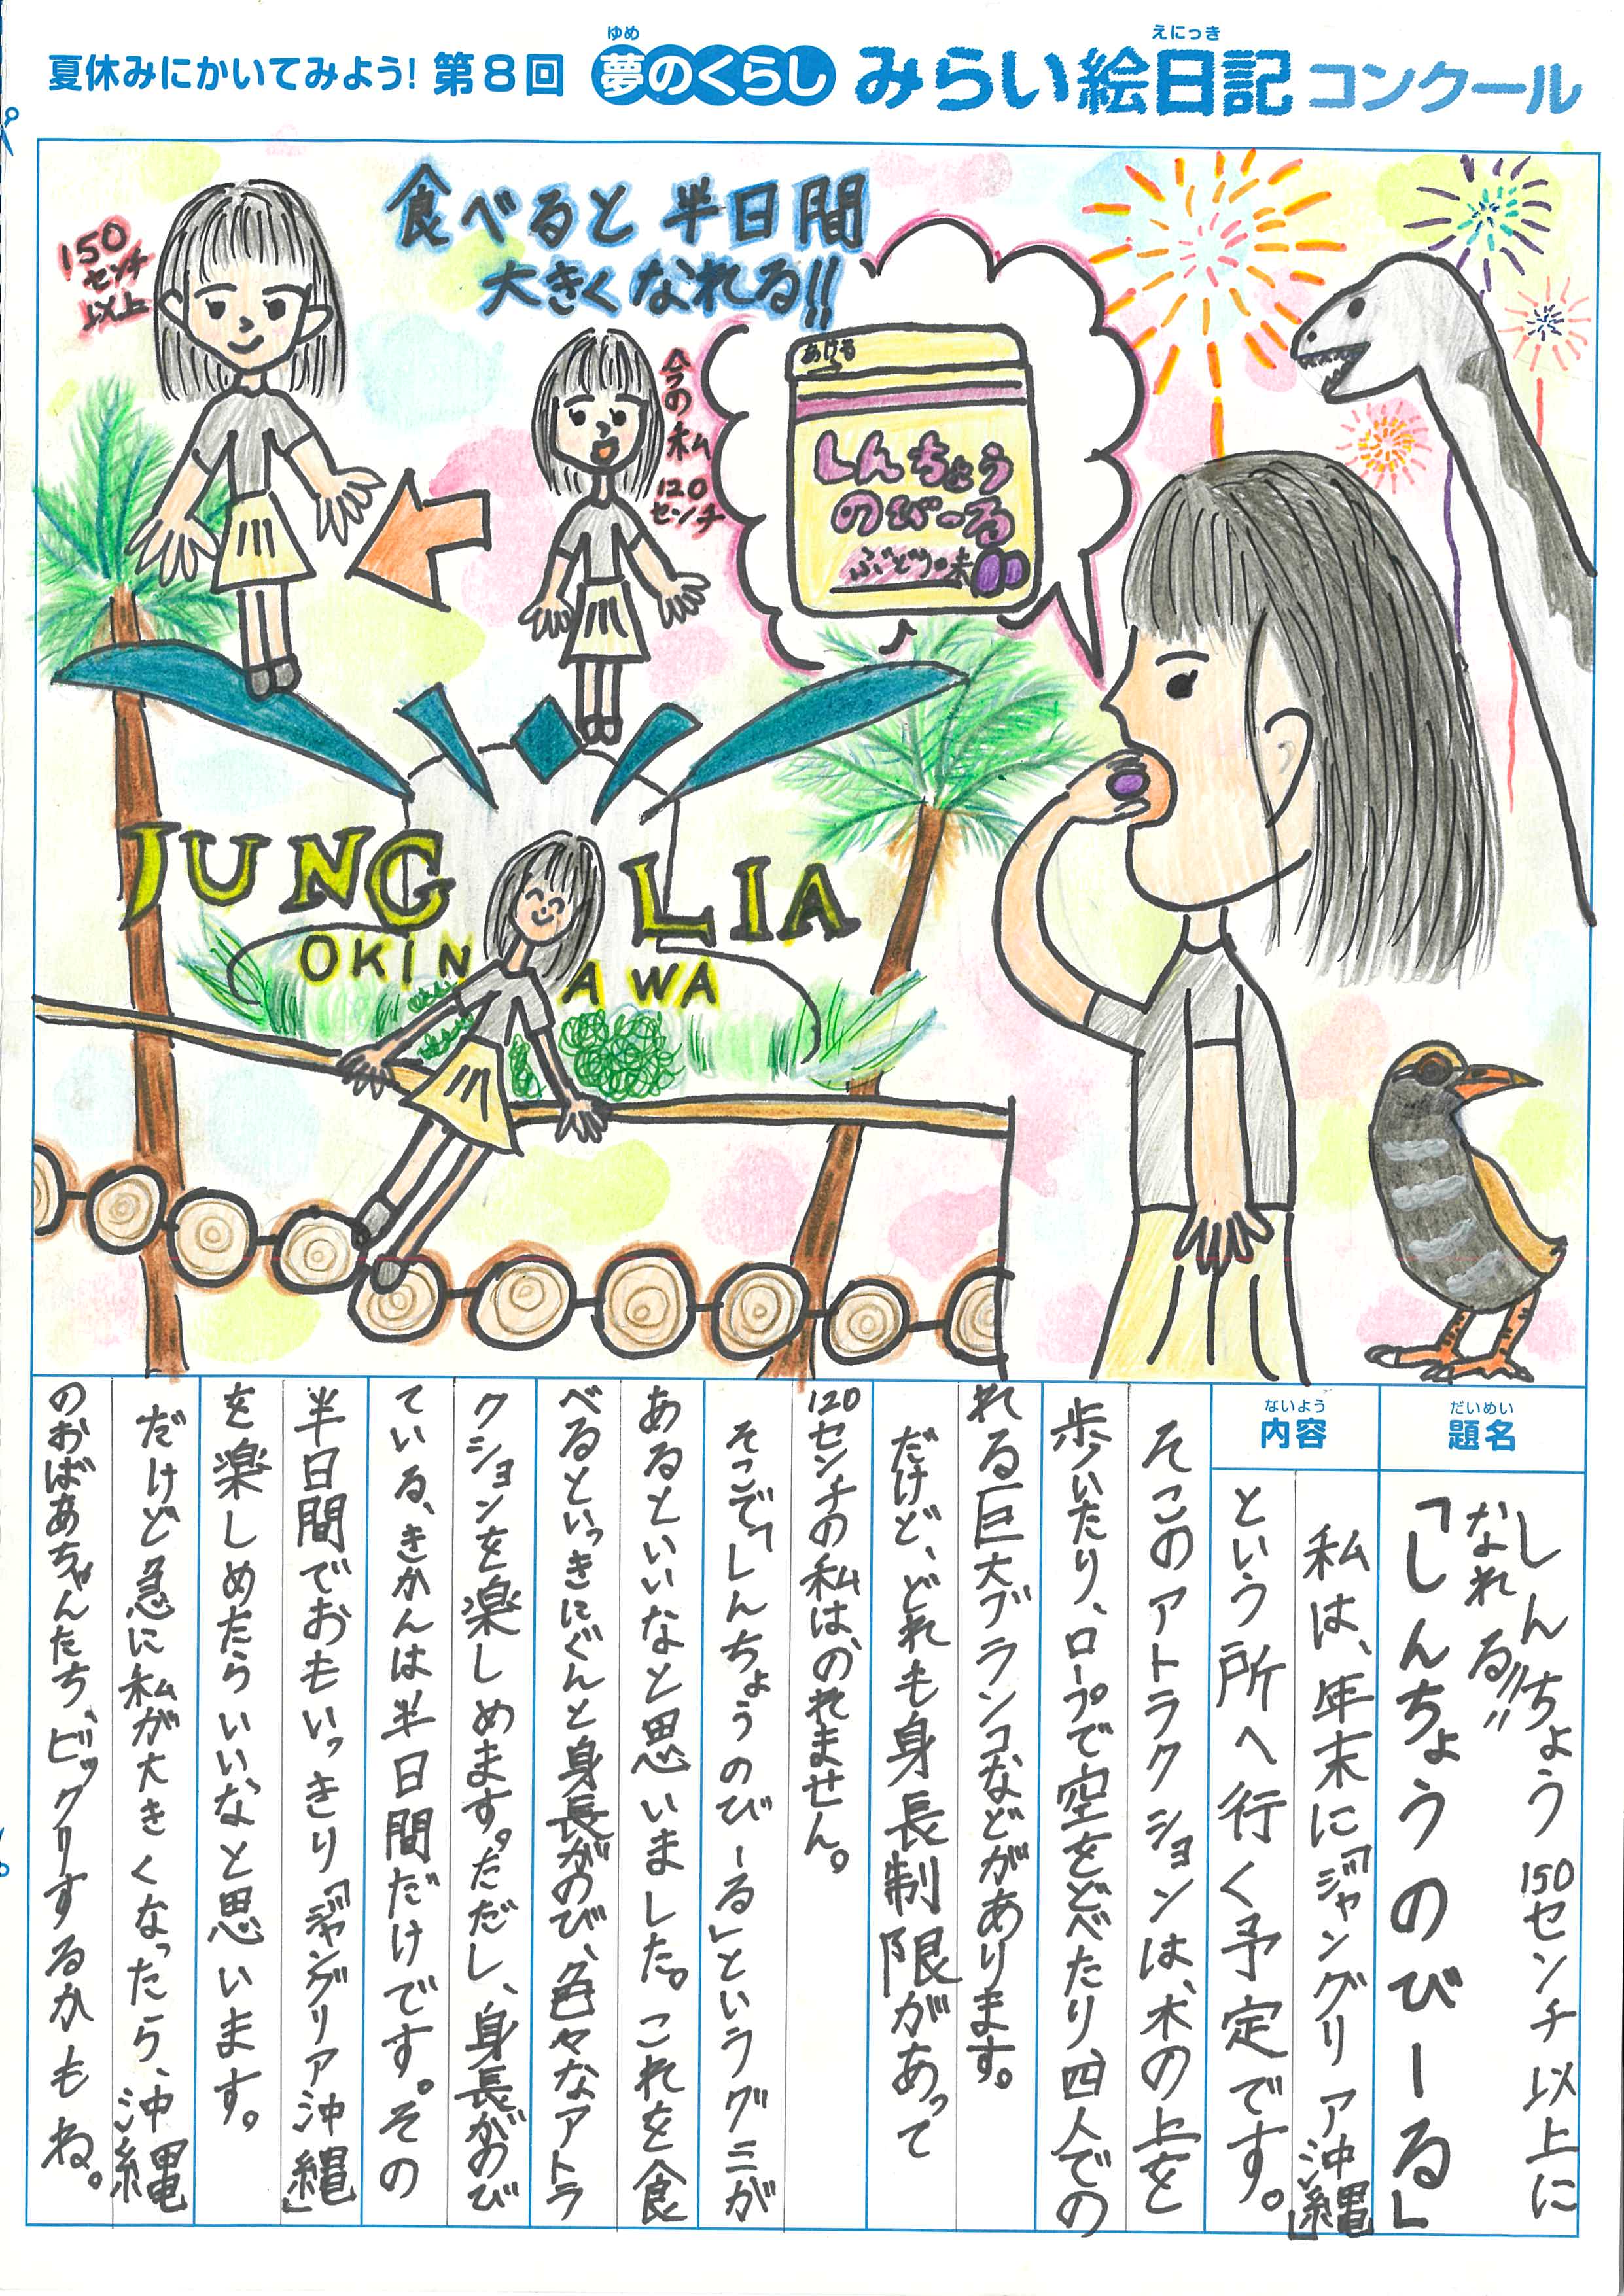 ゆめ
えにっき
夏休みにかいてみよう! 第8回 夢のくらし みらい絵日記 コンクール
食べると半日間
大きくなれる!!
150
センチ
以上
今の私
120
センチ
あける
しんちょう
のびーる
ぶどう味
JUNG LIA
OKIN AWA
だいめい
題名
しんちょう150センチ以上に
なれる!!!
「しんちょうのびーる」
ないよう
内容
私は、年末に「ジャングリア沖縄」
という所へ行く予定です。
そこのアトラクションは、木の上を
歩いたり、ロープで空をとべたり四人での
れる巨大ブランコなどがあります。
だけど、どれも身長制限があって
120センチの私は、のれません。
そこで「しんちょうのびーる」というグミが
あるといいなと思いました。これを食
べるといっきにぐんと身長がのび、色々なアトラ
クションを楽しめます。ただし、身長がのび
ている、きかんは半日間だけです。その
半日間でおもいっきり「ジャングリア沖縄」
を楽しめたらいいなと思います。
だけど急に私が大きくなったら、沖縄
のおばあちゃんたち、ビックリするかもね。